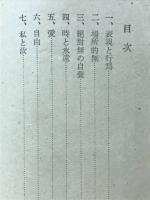 目次
一、表現と行爲
二、場所的無
三、絕對無の自覺
四、時と永遠
五、愛
六、自由
七、私と汝